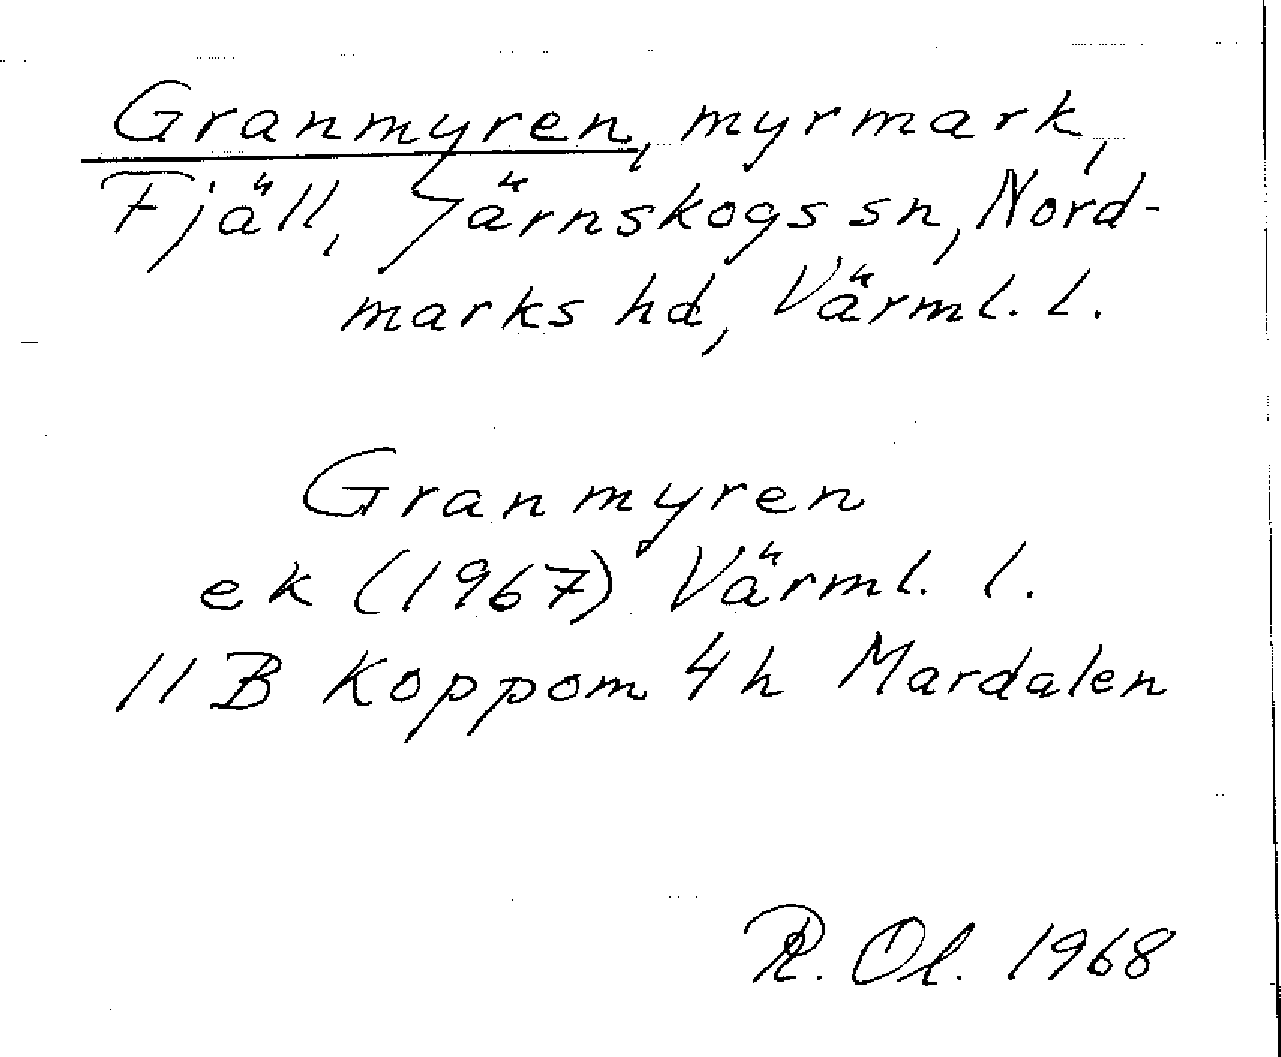 Granmyren, myrmark,
Fjäll, Järnskogs sn, Nord-
marks hd, Värml. l.
Granmyren
ek (1967) Värml. l.
11 B Koppom 4 h Mardalen
R. Ol. 1968